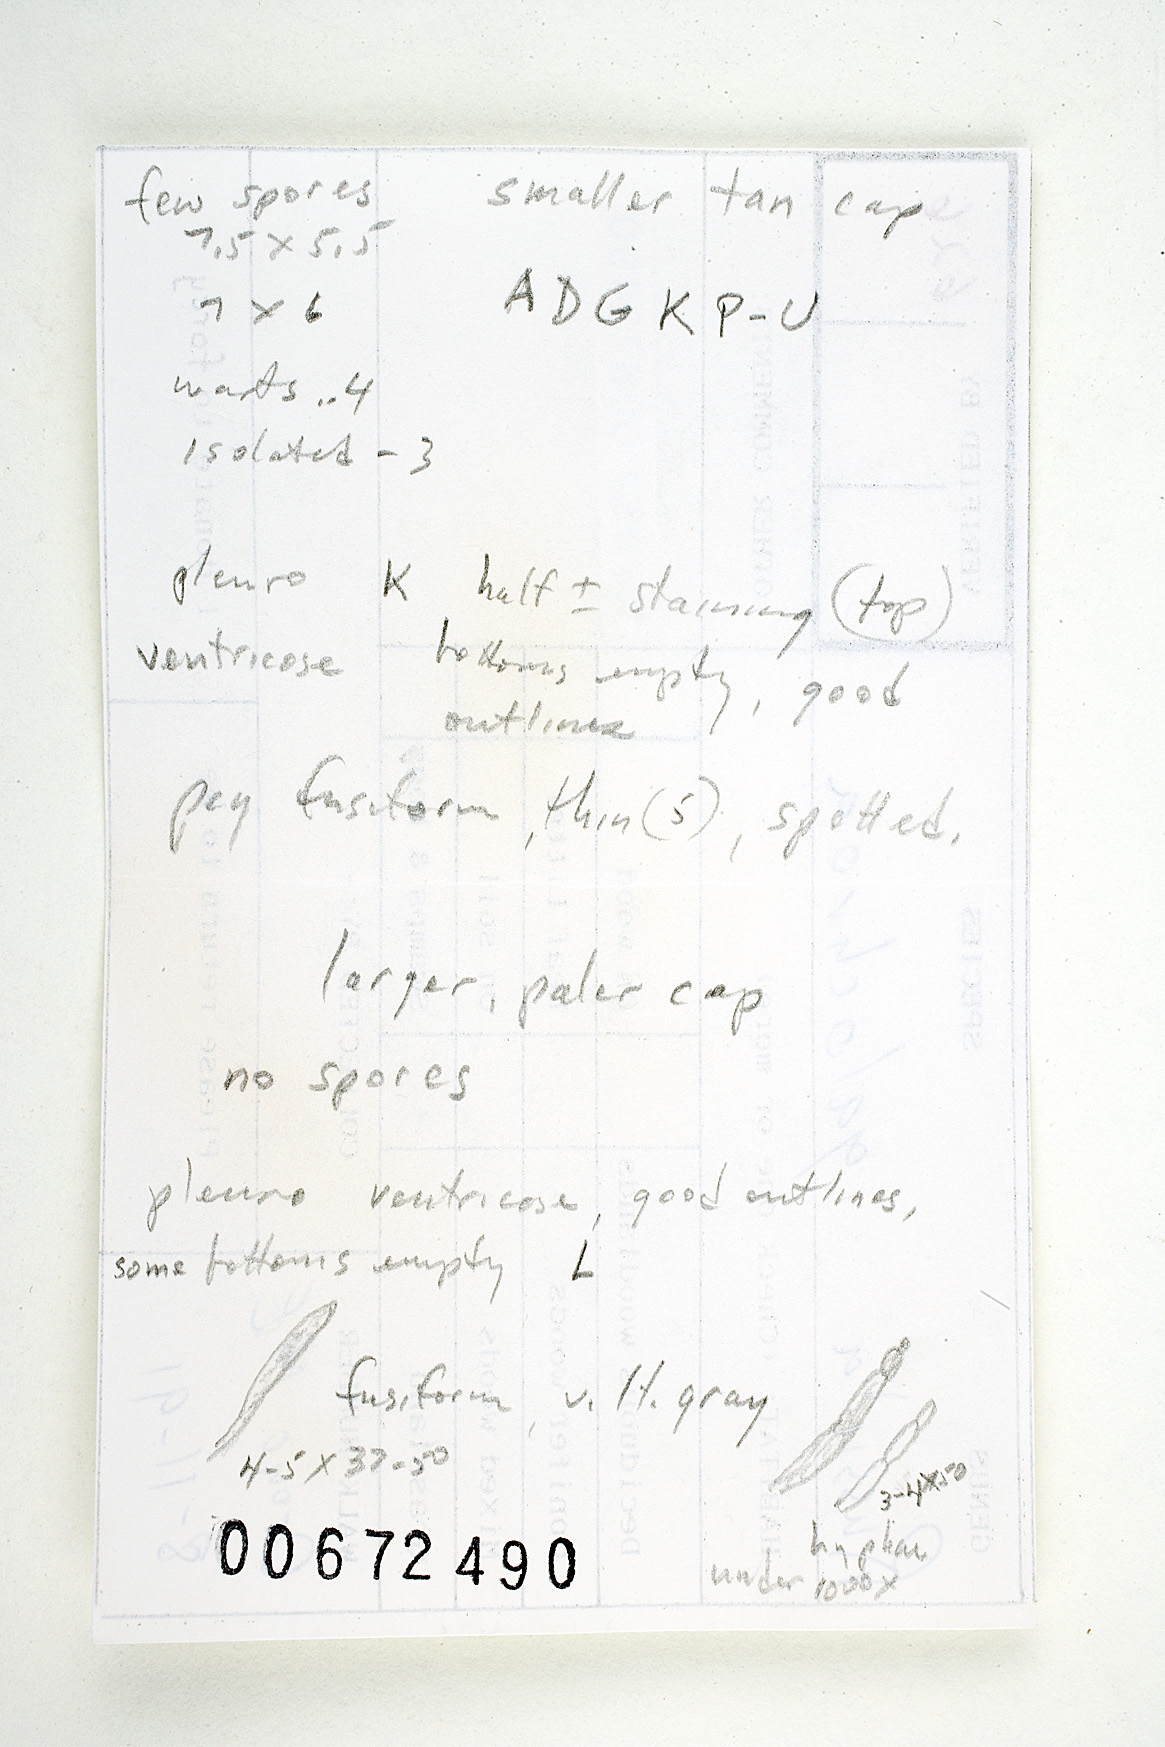 few spores
7.5 x 5.5
7 x 6
warts ..4
isolated - 3
smaller tan cap
ADGKP-U
pleuro K half ± staining (top)
ventricose bottoms empty, good
outlines
peg fusiform, thin (5), spotted.
larger, paler cap
no spores
pleuro ventricose, good outlines,
some bottoms empty L
fusiform, v. H. gray
4-5 x 37-50
3-4 x 50
hyphae
under 1000x
00672490